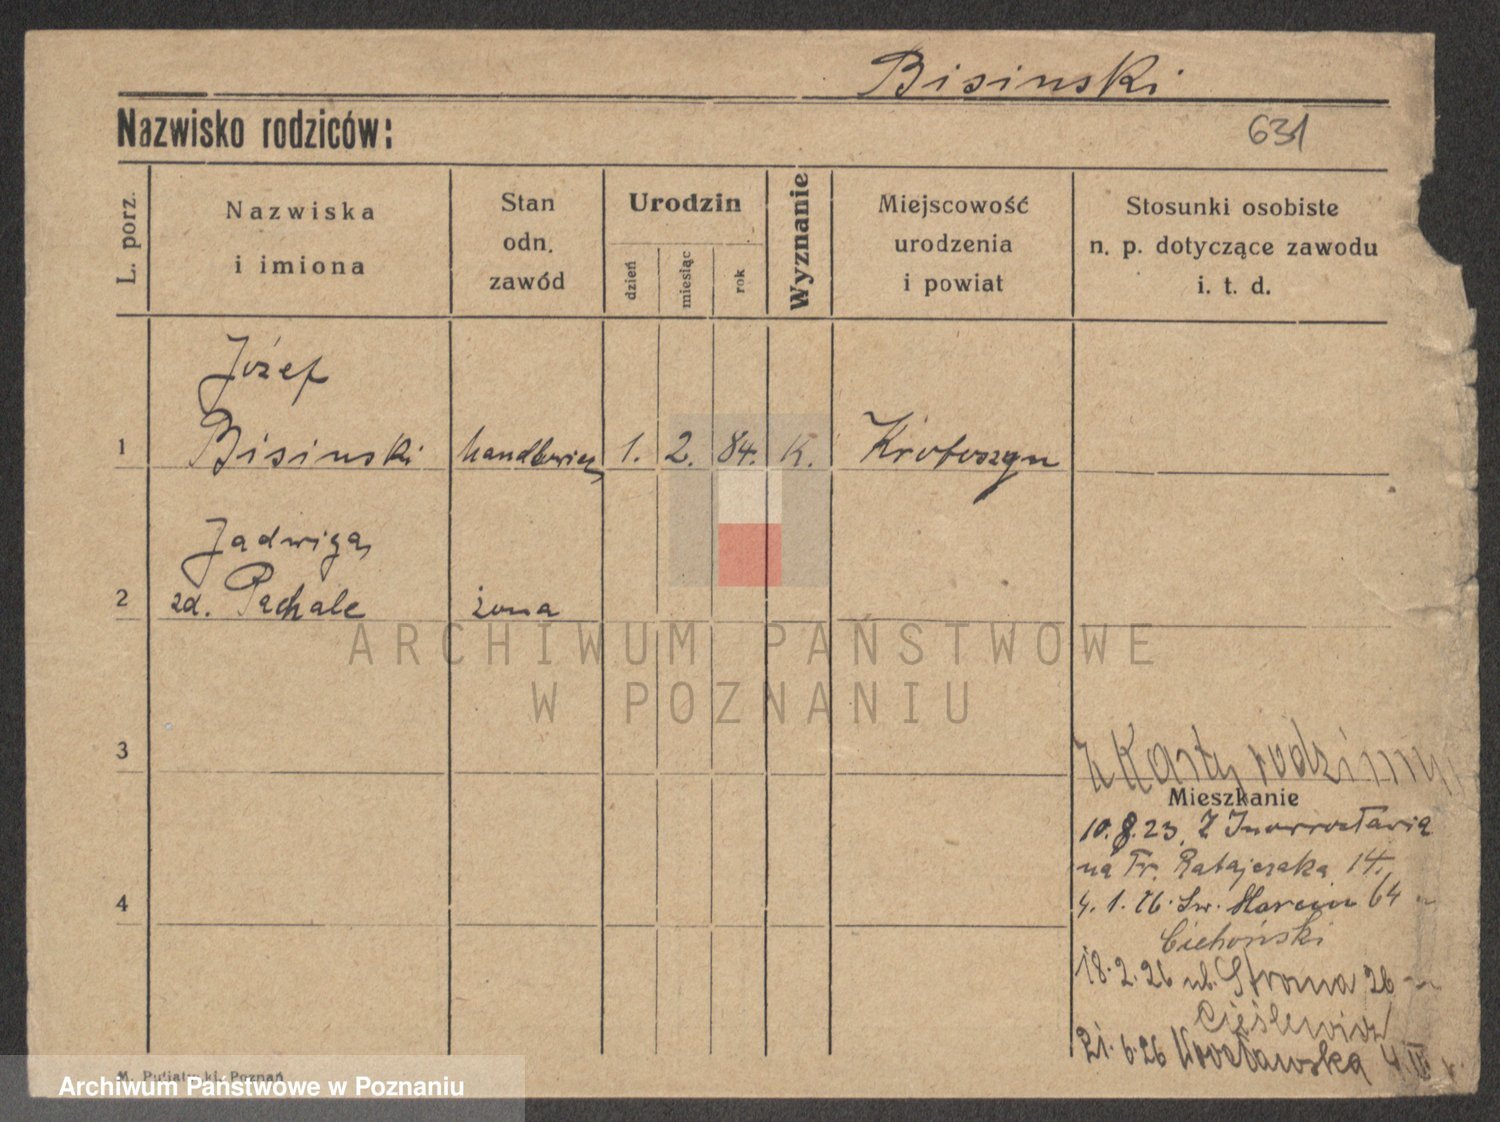 Bisinski
Nazwisko rodziców:
631
L. porz.
Nazwiska
i imiona
Stan
odn.
zawód
Urodzin
dzień
miesiąc
rok
Wyznanie
Miejscowość
urodzenia
i powiat
Stosunki osobiste
n. p. dotyczące zawodu
i. t. d.
Józef
1 Bisinski handlowiec 1. 2. 84. K. Krotoszyn
Jadwiga
2 zd. Pachale żona
ARCHIWUM PAŃSTWOWE
W POZNANIU
3
Z Karty rodzinny
Mieszkanie
10.8.23. Z Inowrocławia
na Fr. Ratajczaka 14,
4
4.1.26. Św. Marcin 64
Cichoński
18.2.26 ul. Stroma 26
Cieślewicz
21.6.26 Wrocławska 4
Poznań
Archiwum Państwowe w Poznaniu